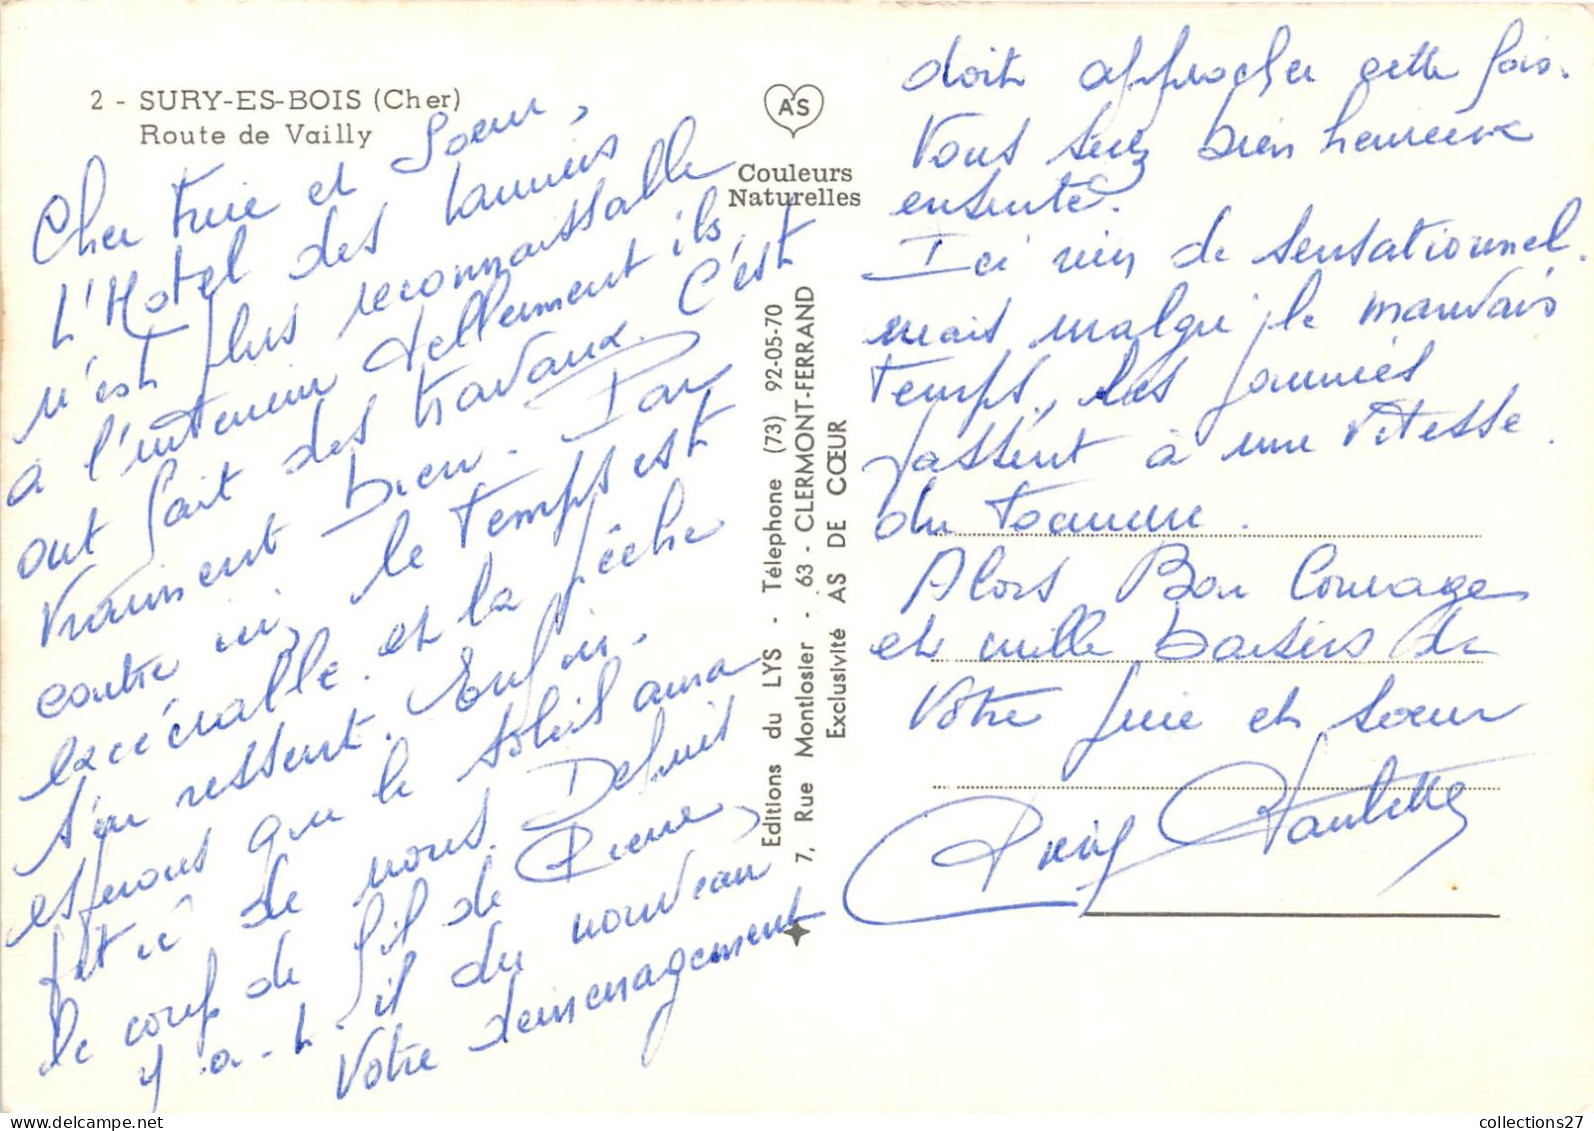 2 - SURY-ES-BOIS (Cher)
Route de Vailly
Cher frère et soeur,
L'Hotel des
n'est plus reconnaissable
a l'interieur tellement ils
ont fait des travaux. C'est
vraiment bien. Par
contre ici, le temps est
execrable. et la pêche
s'en ressent. Enfin.
esperons que le soleil aura
pitié de nous. Depuis
le coup de fil de Pierre,
y a-t-il du nouveau
Votre demenagement
AS
Couleurs
Naturelles
Editions du LYS - Téléphone (73) 92-05-70
7, Rue Montlosier - 63 - CLERMONT-FERRAND
Exclusivité AS DE CŒUR
doit approcher cette fois.
Vous serez bien heureux
ensuite.
Ici rien de sensationnel.
mais malgré le mauvais
temps, les journées
passent à une vitesse
du tonnerre.
Alors Bon Courage
et mille baisers de
Votre frère et soeur
Paulette
collections27